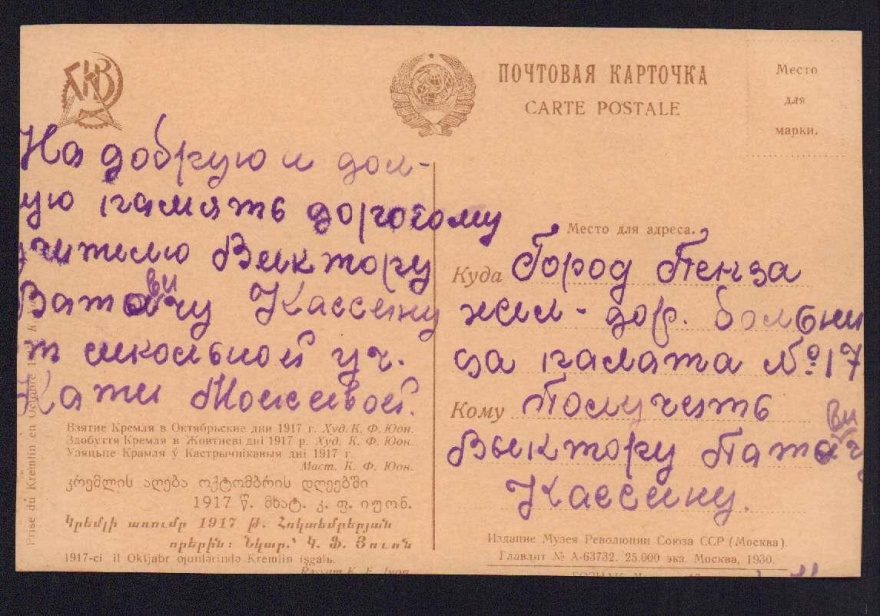 ПОЧТОВАЯ КАРТОЧКА
CARTE POSTALE
Место
для
марки.
На добрую и дол-
ую память дорогому
учителю Виктору
чу Кассину
школьной уч.
Кати Моисеевой.
Взятие Кремля в Октябрьские дни 1917 г. Худ. К. Ф. Юон.
Здобуття Кремля в Жовтневі дні 1917 р. Худ. К. Ф. Юон.
Узяцьце Крамля ў Кастрычнікавыя дні 1917 г.
Маст. К. Ф. Юон.
კრემლის აღება ოქტომბრის დღეებში
1917 წ. მხატ. კ. ფ. იუონ.
Կրեմլի առումը 1917 թ. Հոկտեմբերյան
որերին: Նկար.՝ Կ. Ֆ. Յուոն
1917-ci il Oktjabr ojunlarində Kremlin isgalь.
Rəssam K. F. Juon.
Prise du Kremlin en Octobre
Место для адреса.
Куда Город Пенза
жел-дор. больни
ца палата №17
Кому Получить
Виктору
Кассину.
Издание Музея Революции Союза ССР (Москва).
Главлит № А-63732. 25.000 экз. Москва, 1930.